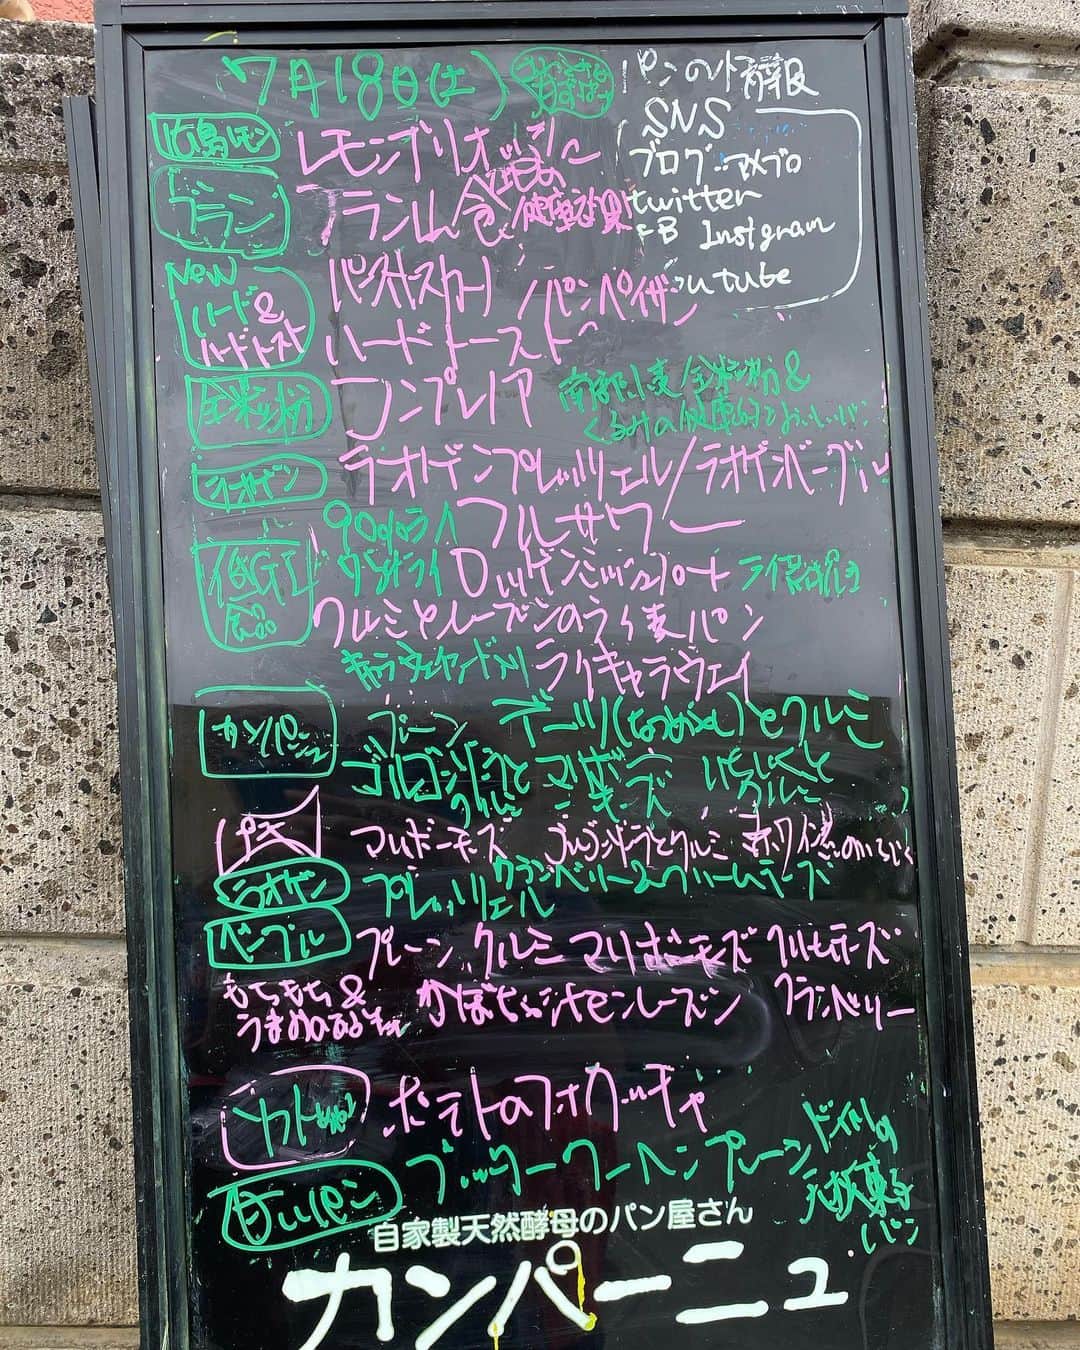 7月18日(土)
パンの情報
SNS
ブログ アメブロ
twitter
FB Instgram
outube
広島レモン レモンブリオッシュ
ブラン ブラン山食
New
ハード&
ハードトースト
パンペイザン
ハードトースト
全粒粉 コンプレノア
南部小麦/全粒粉&
くるみの健康的でおいしいパン
ラオゲン ラオゲンプレッツェル/ラオゲンベーグル
90%ライ フルサワー
低GI
食品
ロッゲンミッシュブロート
クルミとレーズンのライ麦パン
ライキャラウェイ
カンパーニュ プレーン デーツ(なつめやし)とクルミ
ゴルゴンゾーラと
クルミ
いちじくと
クルミ
マリボーチーズ ゴルゴンゾーラとクルミ
ラオゲン プレッツェル クランベリー&クリームチーズ
ベーグル プレーン クルミ マリボーチーズ
もちもち&
かぼちゃ レーズン クランベリー
ポテトのフォカッチャ
甘いパン ブッタークーヘンプレーン
ドイツの
鉄板菓子
パン
自家製天然酵母のパン屋さん
カンパーニュ